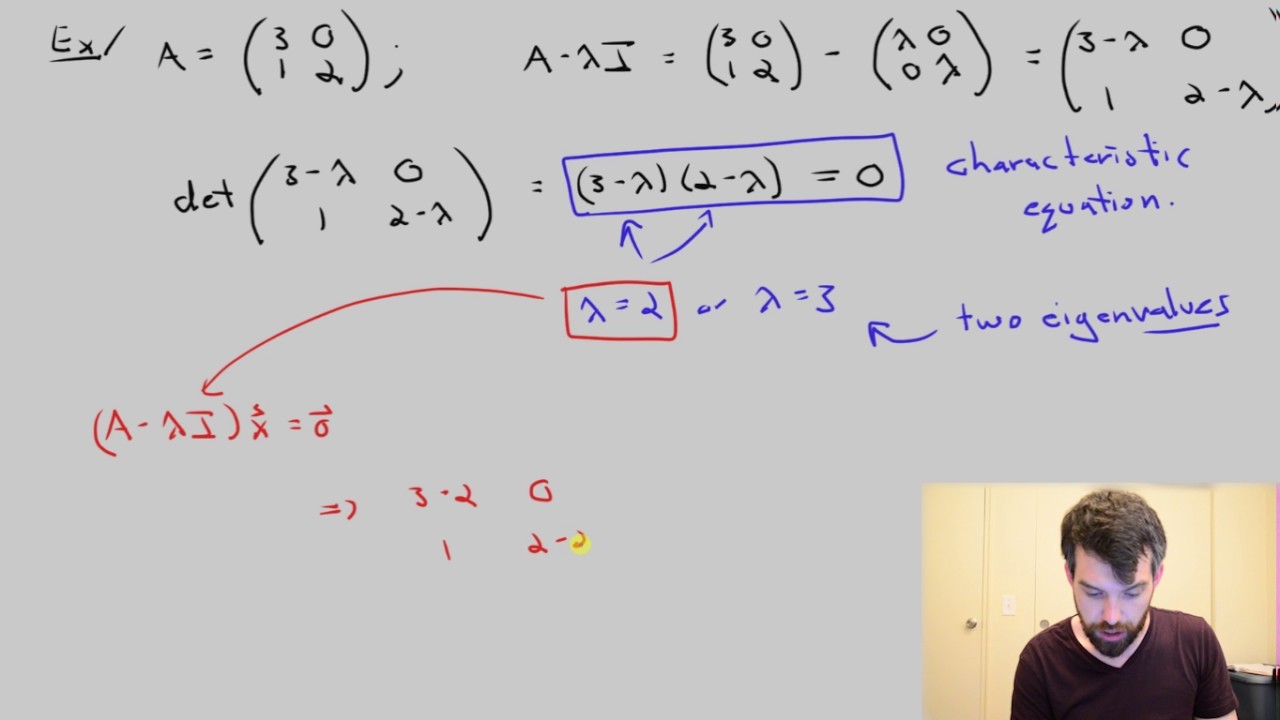 Ex/ A = (3 0 1 2); A-λI = (3 0 1 2) - (λ 0 0 λ) = (3-λ 0 1 2-λ)
det (3-λ 0 1 2-λ) = (3-λ)(2-λ) = 0 characteristic equation.
λ=2 or λ=3 two eigenvalues
(A-λI)x⃗ = 0⃗
=> 3-2 0
1 2-2